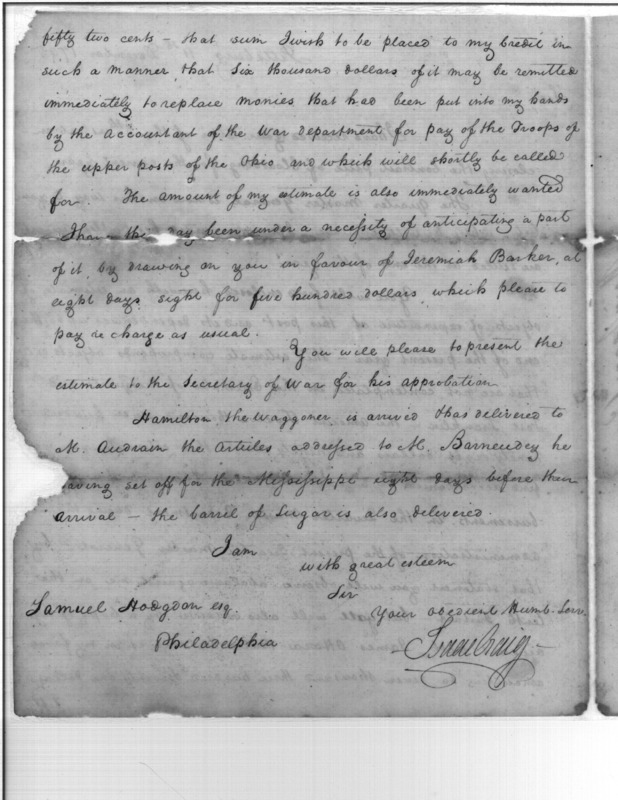 fifty two cents – that sum I wish to be placed to my Credit in
such a manner, that Six thousand dollars of it may be remitted
immediately to replace monies that had been put into my hands
by the Accountant of the War department for pay of the Troops of
the upper posts of the Ohio and which will shortly be called
for. The amount of my estimate is also immediately wanted
I have this day been under a necessity of anticipating a part
of it, by drawing on you in favour of Jeremiah Barker, at
eight days sight for five hundred dollars, which please to
pay & charge as usual.
You will please to present the
estimate to the Secretary of War for his approbation
Hamilton the Waggoner is arrived & has delivered to
M. Audrain the Articles addressed to M. he
having set off for the Mississippi eight days before their
arrival – the barril of Sugar is also delivered.
I am
with great esteem
Sir
Samuel Hodgdon esq.
Your obedient Humb. Serv.
Philadelphia
Isaac Craig